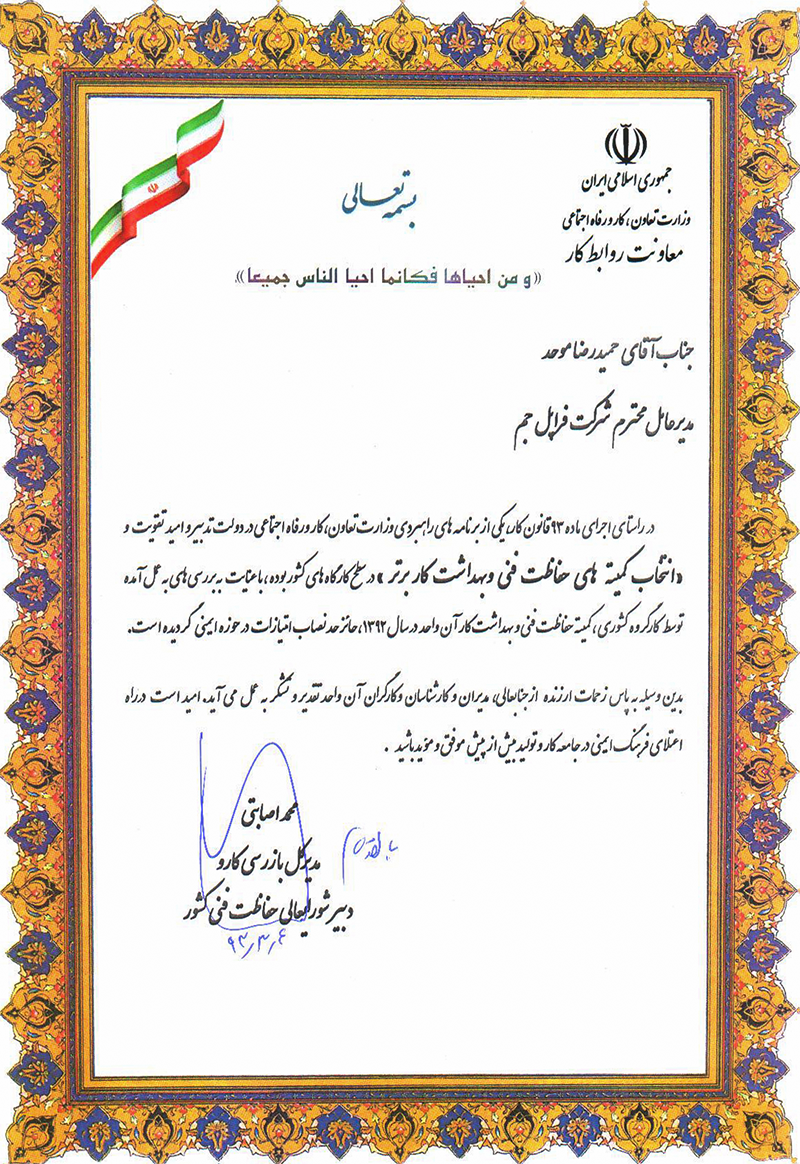 جمهوری اسلامی ایران
وزارت تعاون، کار و رفاه اجتماعی
معاونت روابط کار
بسمه تعالی
((و من احیاها فکانما احیا الناس جمیعا)).
جناب آقای حمیدرضا موحد
مدیرعامل محترم شرکت فراپل جم
در راستای اجرای ماده ۹۳ قانون کار، یکی از برنامه های راهبردی وزارت تعاون، کار و رفاه اجتماعی در دولت تدبیر و امید تقویت و
«انتخاب کمیته های حفاظت فنی و بهداشت کار برتر» در سطح کارگاه های کشور بوده، با عنایت به بررسی های به عمل آمده
توسط کارگروه کشوری، کمیته حفاظت فنی و بهداشت کار آن واحد در سال ۱۳۹۲، حائز حد نصاب امتیازات در حوزه ایمنی گردیده است.
بدین وسیله به پاس زحمات ارزنده از جنابعالی، مدیران و کارشناسان و کارگران آن واحد تقدیر و تشکر به عمل می آید. امید است در راه
اعتلای فرهنگ ایمنی در جامعه کار و تولید بیش از پیش موفق و مؤید باشید .
محمد اصابتی
مدیرکل بازرسی کار و
دبیر شورایعالی حفاظت فنی کشور
۹۳٫۳٫۶